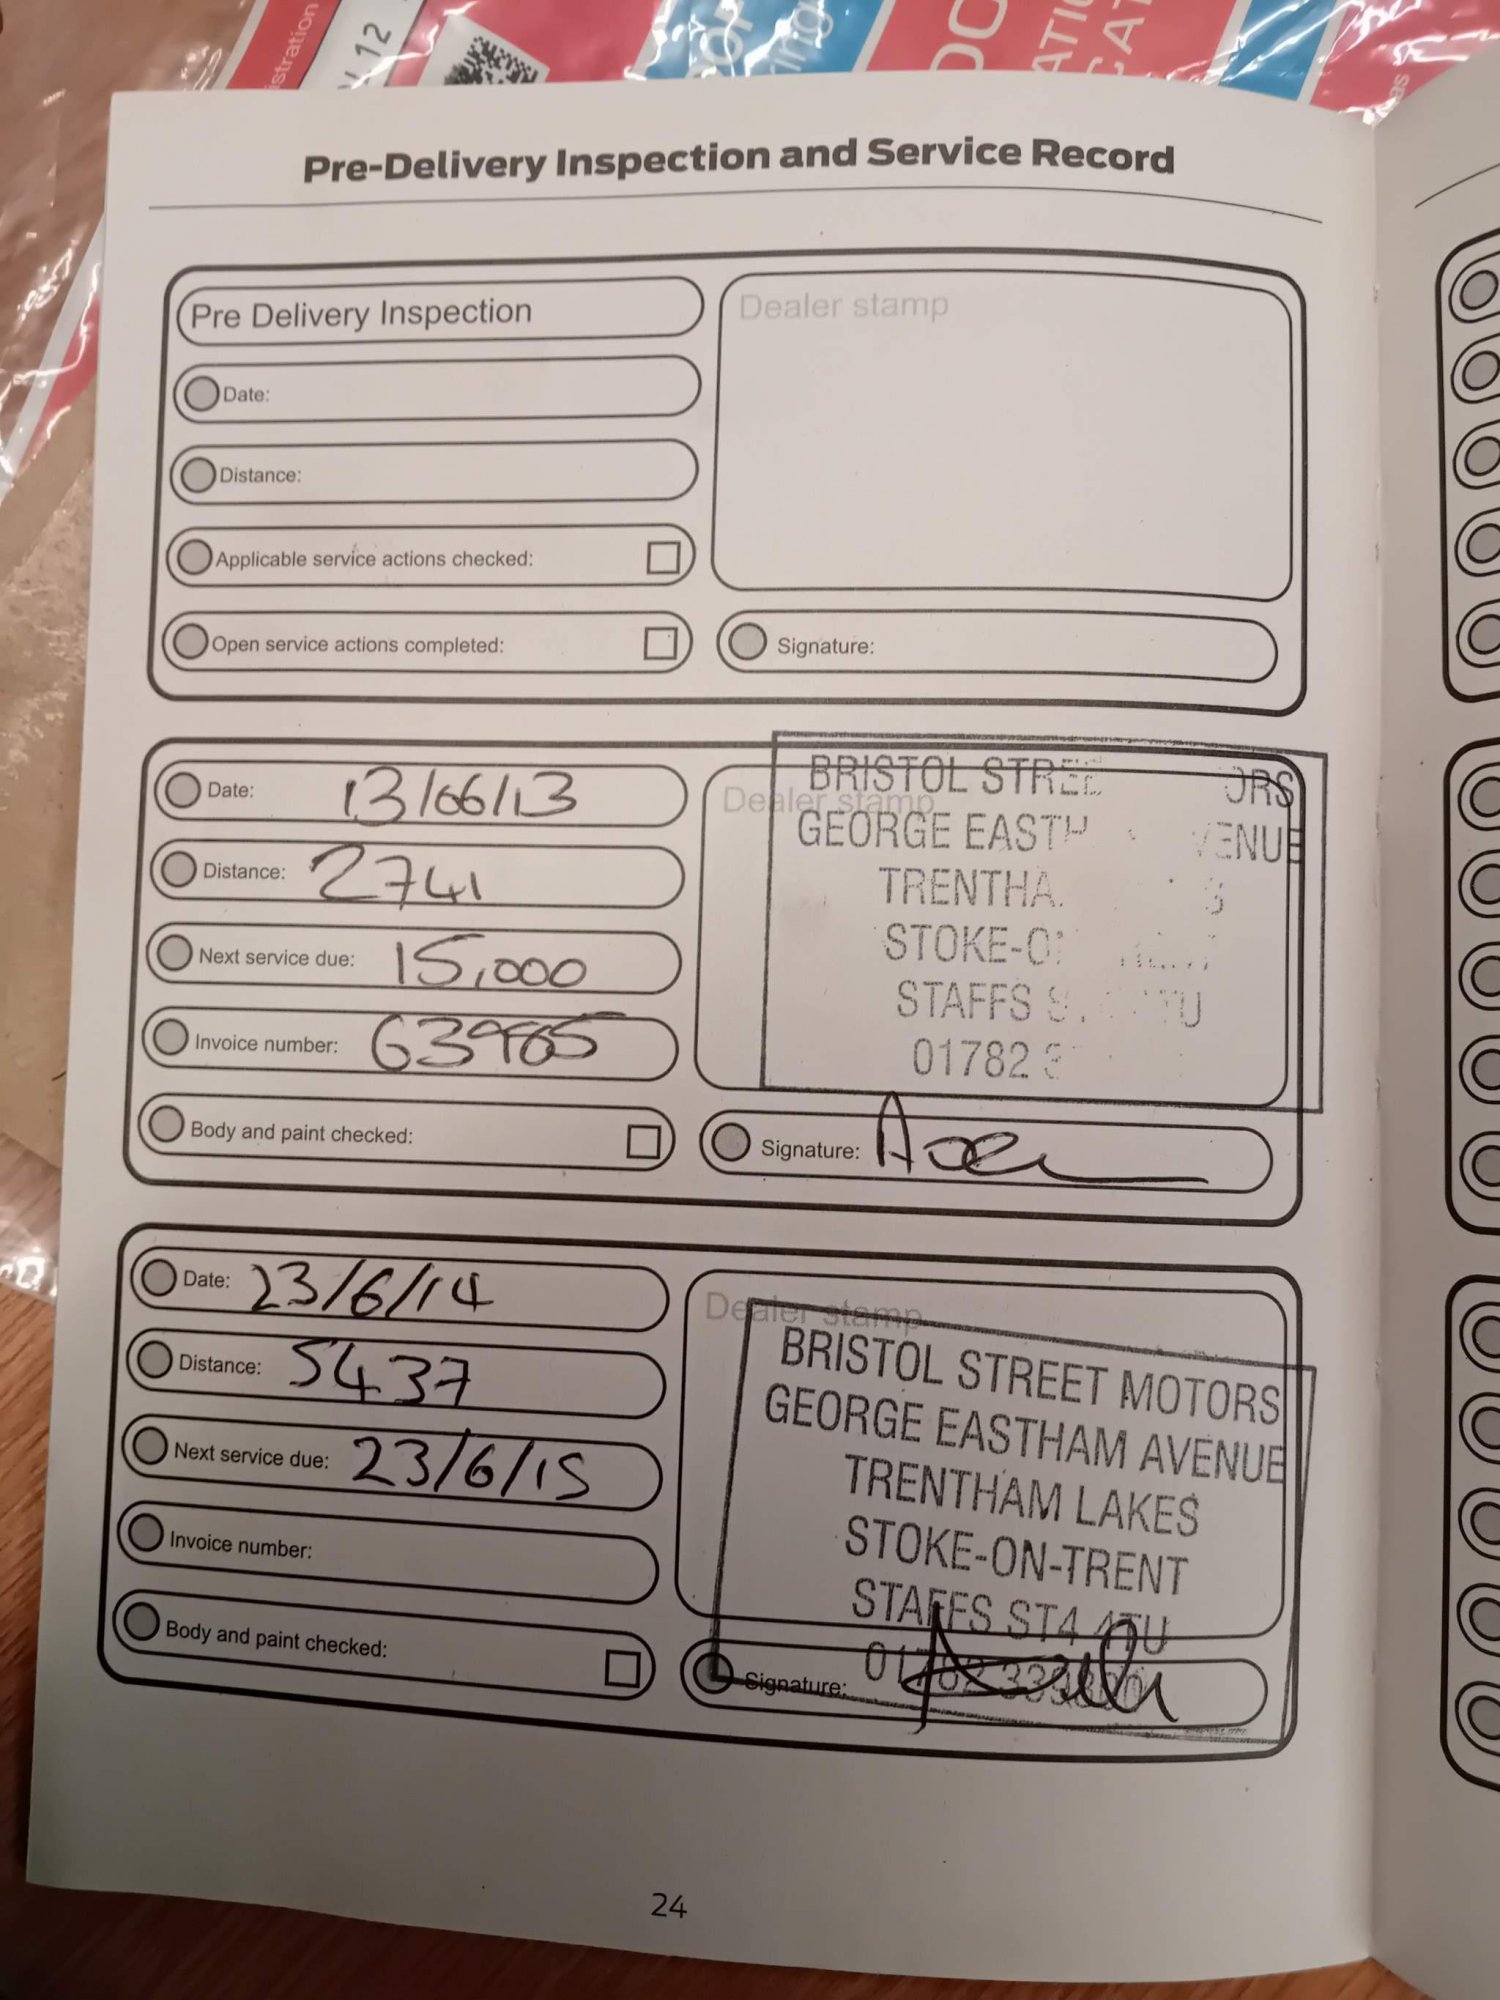 istration
12
ring
Pre-Delivery Inspection and Service Record
Pre Delivery Inspection
Dealer stamp
Date:
Distance:
Applicable service actions checked:
Open service actions completed:
Signature:
Date: 13/06/13
Distance: 2741
Next service due: 15,000
Invoice number: 63985
Body and paint checked:
Dealer stamp
BRISTOL STREE ORS
GEORGE EASTH VENUE
TRENTHA S
STOKE-O
STAFFS S TU
01782 3
Signature:
Date: 23/6/14
Distance: 5437
Next service due: 23/6/15
Invoice number:
Body and paint checked:
Dealer stamp
BRISTOL STREET MOTORS
GEORGE EASTHAM AVENUE
TRENTHAM LAKES
STOKE-ON-TRENT
STAFFS ST4 4TU
Signature:
24